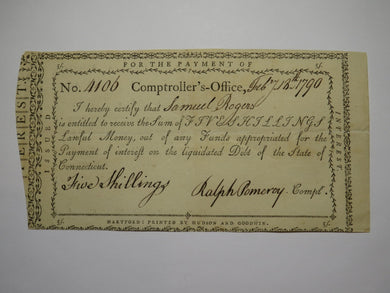 5/. FOR THE PAYMENT OF 5/.
No. 4106 Comptroller's-Office, Feby 18th 1790
I hereby certify that Samuel Rogers
is entitled to receive the Sum of FIVE SHILLINGS
Lawful Money, out of any Funds appropriated for the
Payment of interest on the liquidated Debt of the State of
Connecticut.
Five Shillings Ralph Pomeroy Compt.
5/. 5/.
HARTFORD: PRINTED BY HUDSON AND GOODWIN.
ISSUED
INTEREST.